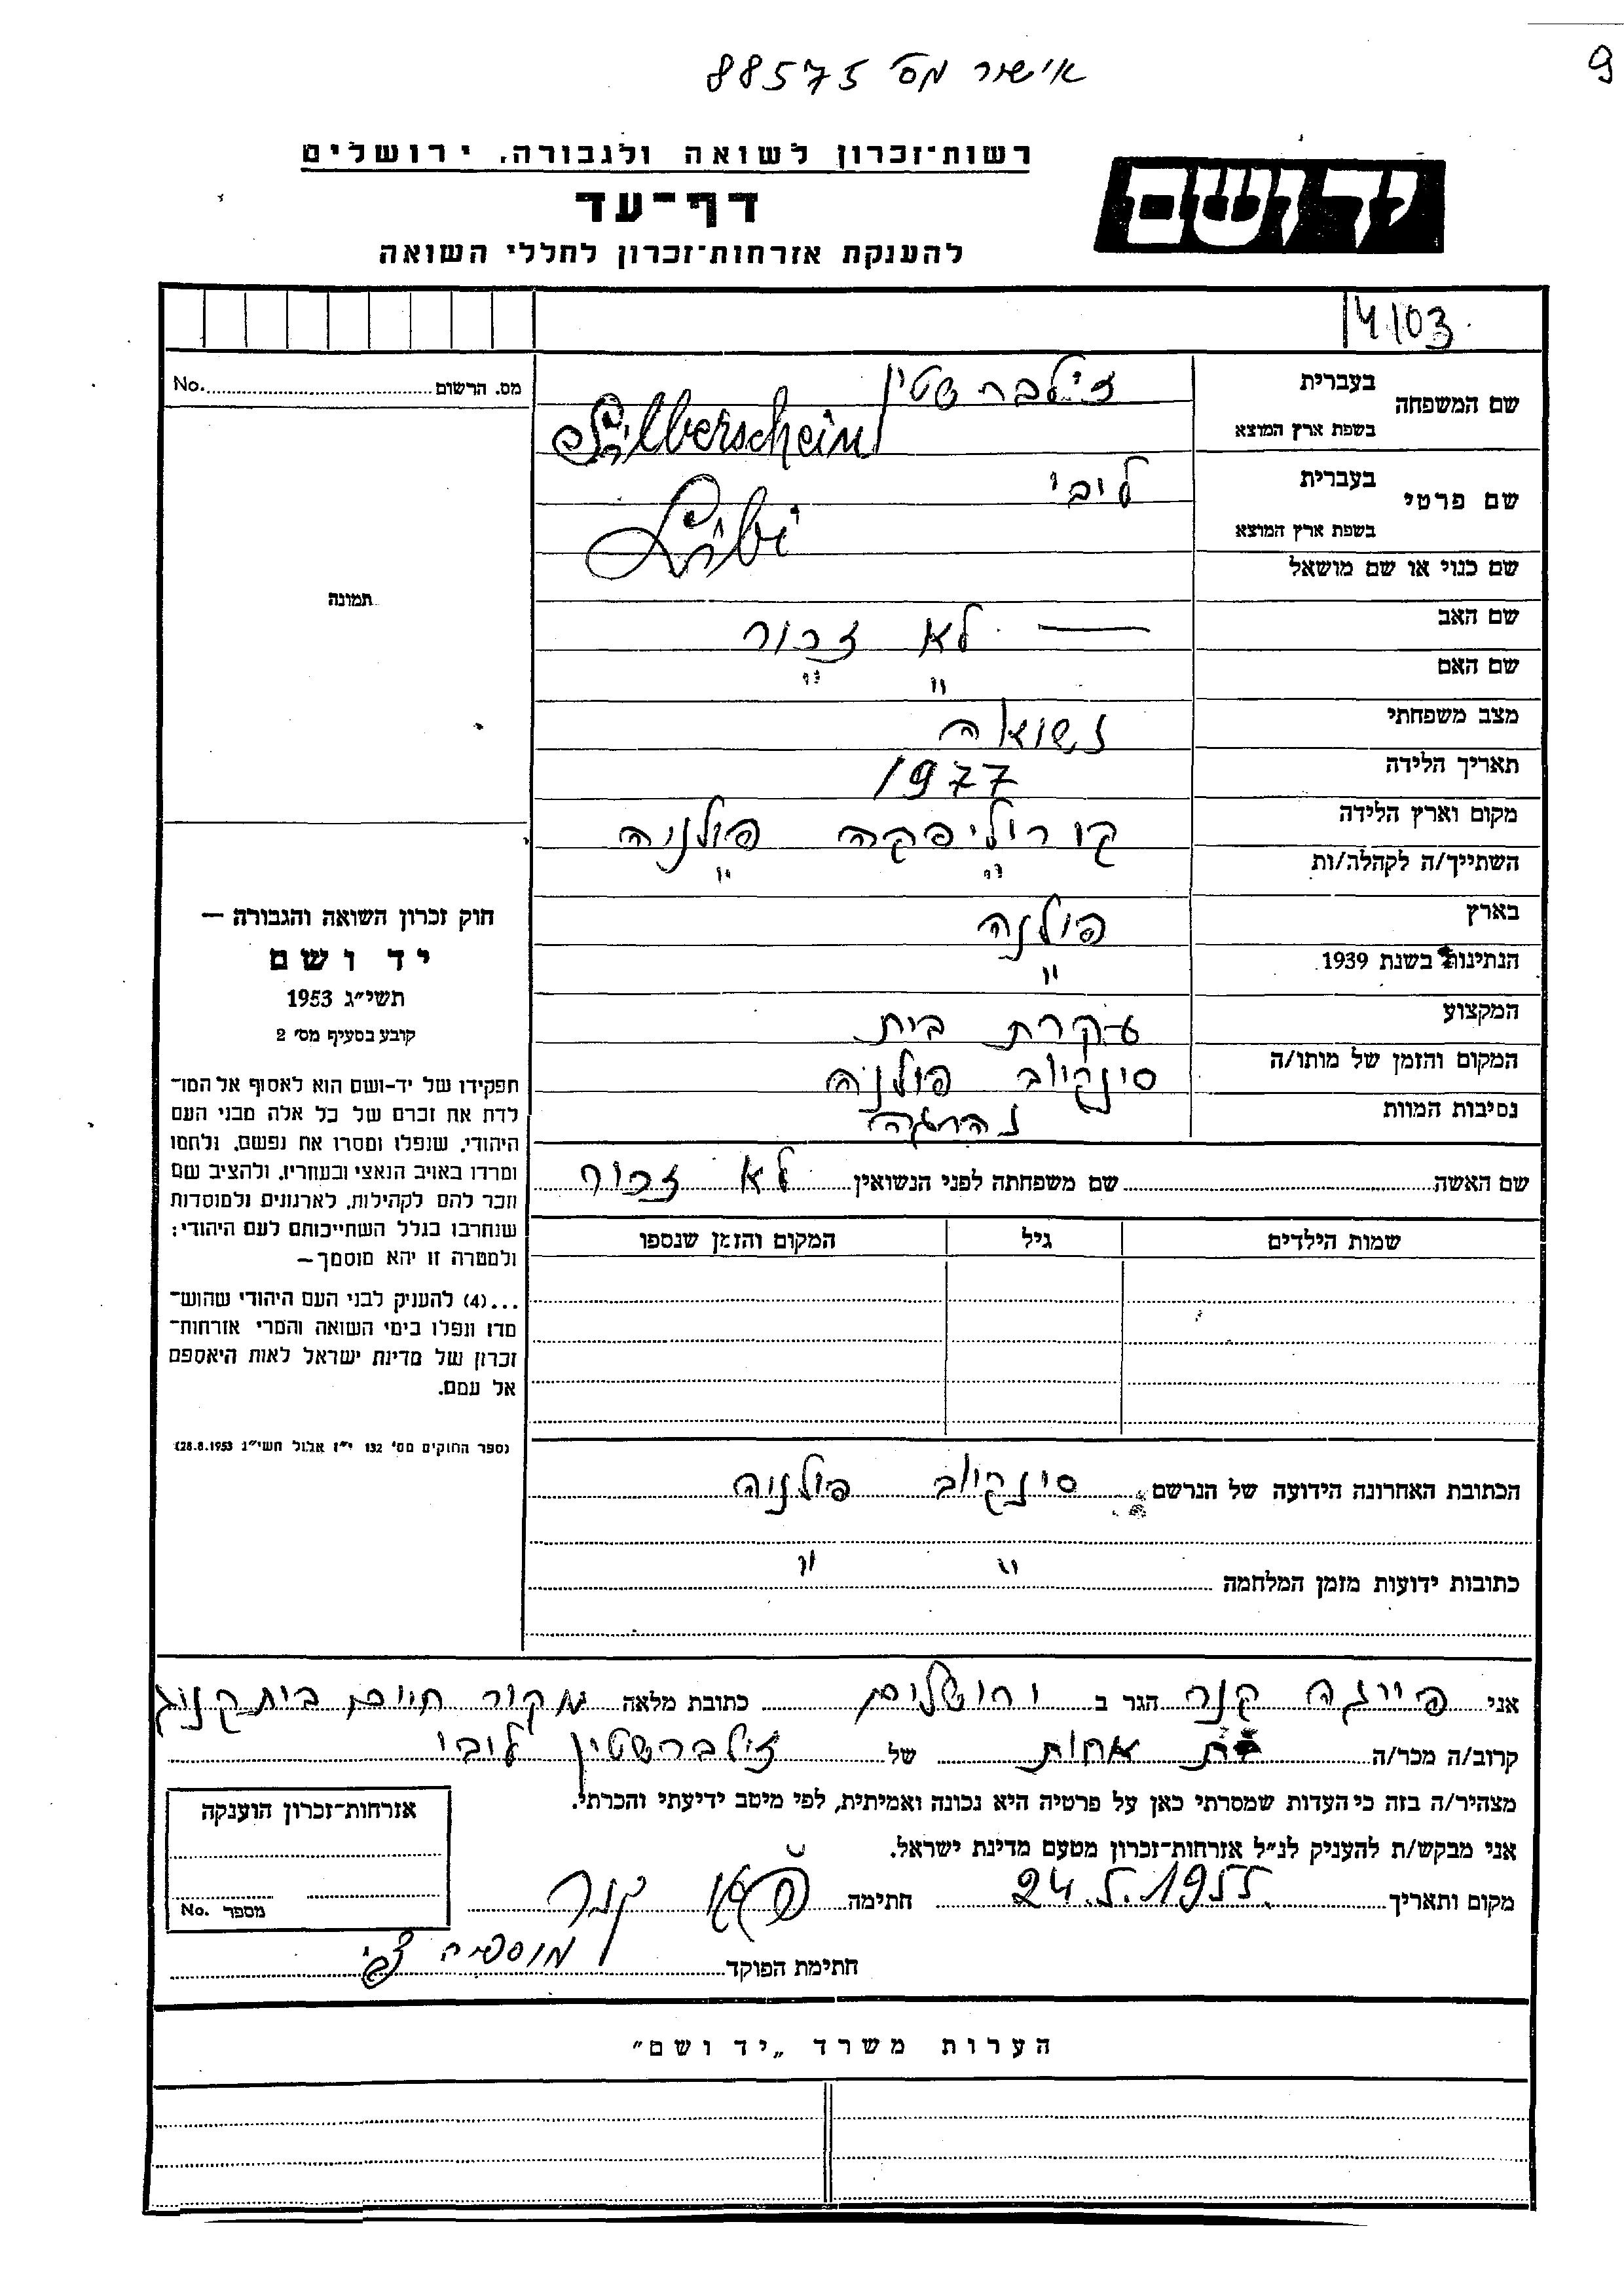 אישור מס' 88575
9
רשות־זכרון לשואה ולגבורה, ירושלים
יד ושם
דף־עד
להענקת אזרחות־זכרון לחללי השואה
14103
מס. הרשום No.
שם המשפחה בעברית זילברשטין
בשפת ארץ המוצא Silberschein
שם פרטי בעברית ליבי
בשפת ארץ המוצא Libi
שם כנוי או שם מושאל
שם האב — לא זכור
שם האם " "
מצב משפחתי נשואה
תאריך הלידה 1977
מקום וארץ הלידה קורוליפקה פולניה
השתייך/ה לקהלה/ות " "
בארץ פולנה
הנתינות בשנת 1939 "
המקצוע עקרת בית
המקום והזמן של מותו/ה סינקיוב פולניה
נסיבות המוות נהרגה
תמונה
חוק זכרון השואה והגבורה —
יד ושם
תשי"ג 1953
קובע בסעיף מס' 2
תפקידו של יד-ושם הוא לאסוף אל המו־
לדת את זכרם של כל אלה מבני העם
היהודי, שנפלו ומסרו את נפשם, ולחמו
ומרדו באויב הנאצי ובעוזריו, ולהציב שם
וזכר להם לקהילות, לארגונים ולמוסדות
שנחרבו בגלל השתייכותם לעם היהודי;
ולמטרה זו יהא מוסמך —
...(4) להעניק לבני העם היהודי שהוש־
מדו ונפלו בימי השואה והמרי אזרחות־
זכרון של מדינת ישראל לאות היאספם
אל עמם.
(ספר החוקים מס' 132 י"ז אלול תשי"ג 28.8.1953)
שם האשה שם משפחתה לפני הנשואין לא זכור
שמות הילדים גיל המקום והזמן שנספו
הכתובת האחרונה הידועה של הנרשם סינקיוב פולניה
כתובות ידועות מזמן המלחמה " "
אני פייגה קנר הגר ב ירושלים כתובת מלאה מקור חיים בית קניג
קרוב/ה מכר/ה בת אחות של זילברשטין ליבי
מצהיר/ה בזה כי העדות שמסרתי כאן על פרטיה היא נכונה ואמיתית, לפי מיטב ידיעתי והכרתי.
אני מבקש/ת להעניק לנ"ל אזרחות־זכרון מטעם מדינת ישראל.
מקום ותאריך 24.5.1955 חתימה קנר
חתימת הפוקד צבי
אזרחות־זכרון הוענקה
מספר No.
הערות משרד „יד ושם"